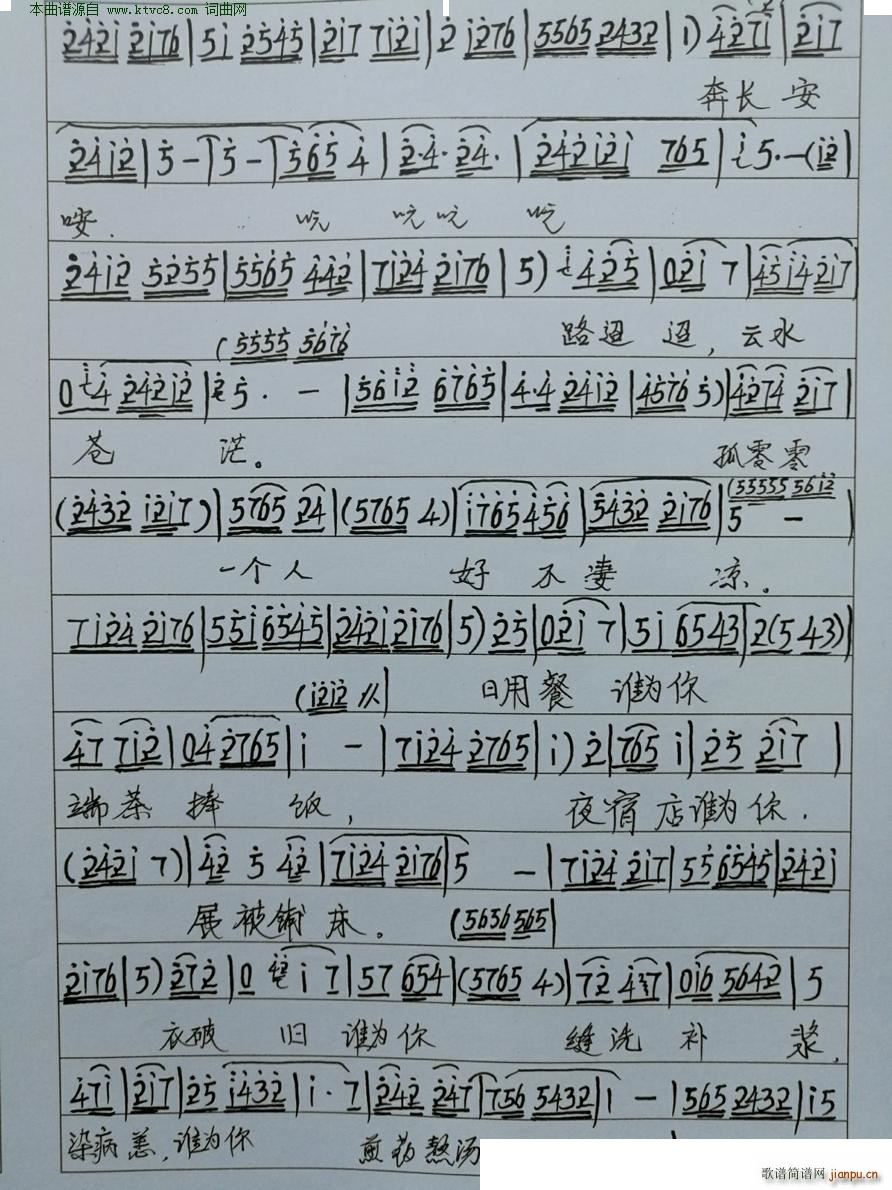 本曲谱源自 www.ktvc8.com 词曲网
2421 2176 | 51 2545 | 217 7121 | 2 1276 | 5565 2432 | 1) 4271 | 217
奔长安
2412 | 5 - | 5 - | 565 4 | 2·4· 24· | 242121 765 | 5·-(12 |
咹. 吭 吭吭 吭
2412 5255 | 5565 442 | 7124 2176 | 5) 425 | 021 7 | 4514217
(5555 5676 路迢迢，云水
0 4 24212 | 5· - | 5612 6765 | 4·4 2412 | 4576 5) | 4274 217 |
苍茫。 孤零零
(2432 1217) | 5765 24 | (5765 4) | 1765456 | 5432 2176 | 5 - |
(55555 5612
一个人 好不凄凉.
7124 2176 | 551 6545 | 2421 2176 | 5) 25 | 021 7 | 51 6543 | 2(5 43) |
(1212 〃| 日用餐 谁为你
47 712 | 04 2765 | 1 - | 7124 2765 | 1) 2 | 765 1 | 25 217 |
端茶捧饭， 夜宿店谁为你.
(2421 7) | 42 5 42 | 7124 2176 | 5 - | 7124 217 | 55 6545 | 2421
展被铺床。 (5656 565 |
2176 | 5) 272 | 0 42 1 7 | 57 654 | (5765 4) | 72 437 | 016 5642 | 5
衣破旧谁为你 缝洗补浆，
471 | 217 | 25 1432 | 1·7 | 242 247 | 756 5432 | 1 - | 565 2432 | 15
染病恙，谁为你 煎药熬汤
歌谱简谱网 jianpu.cn